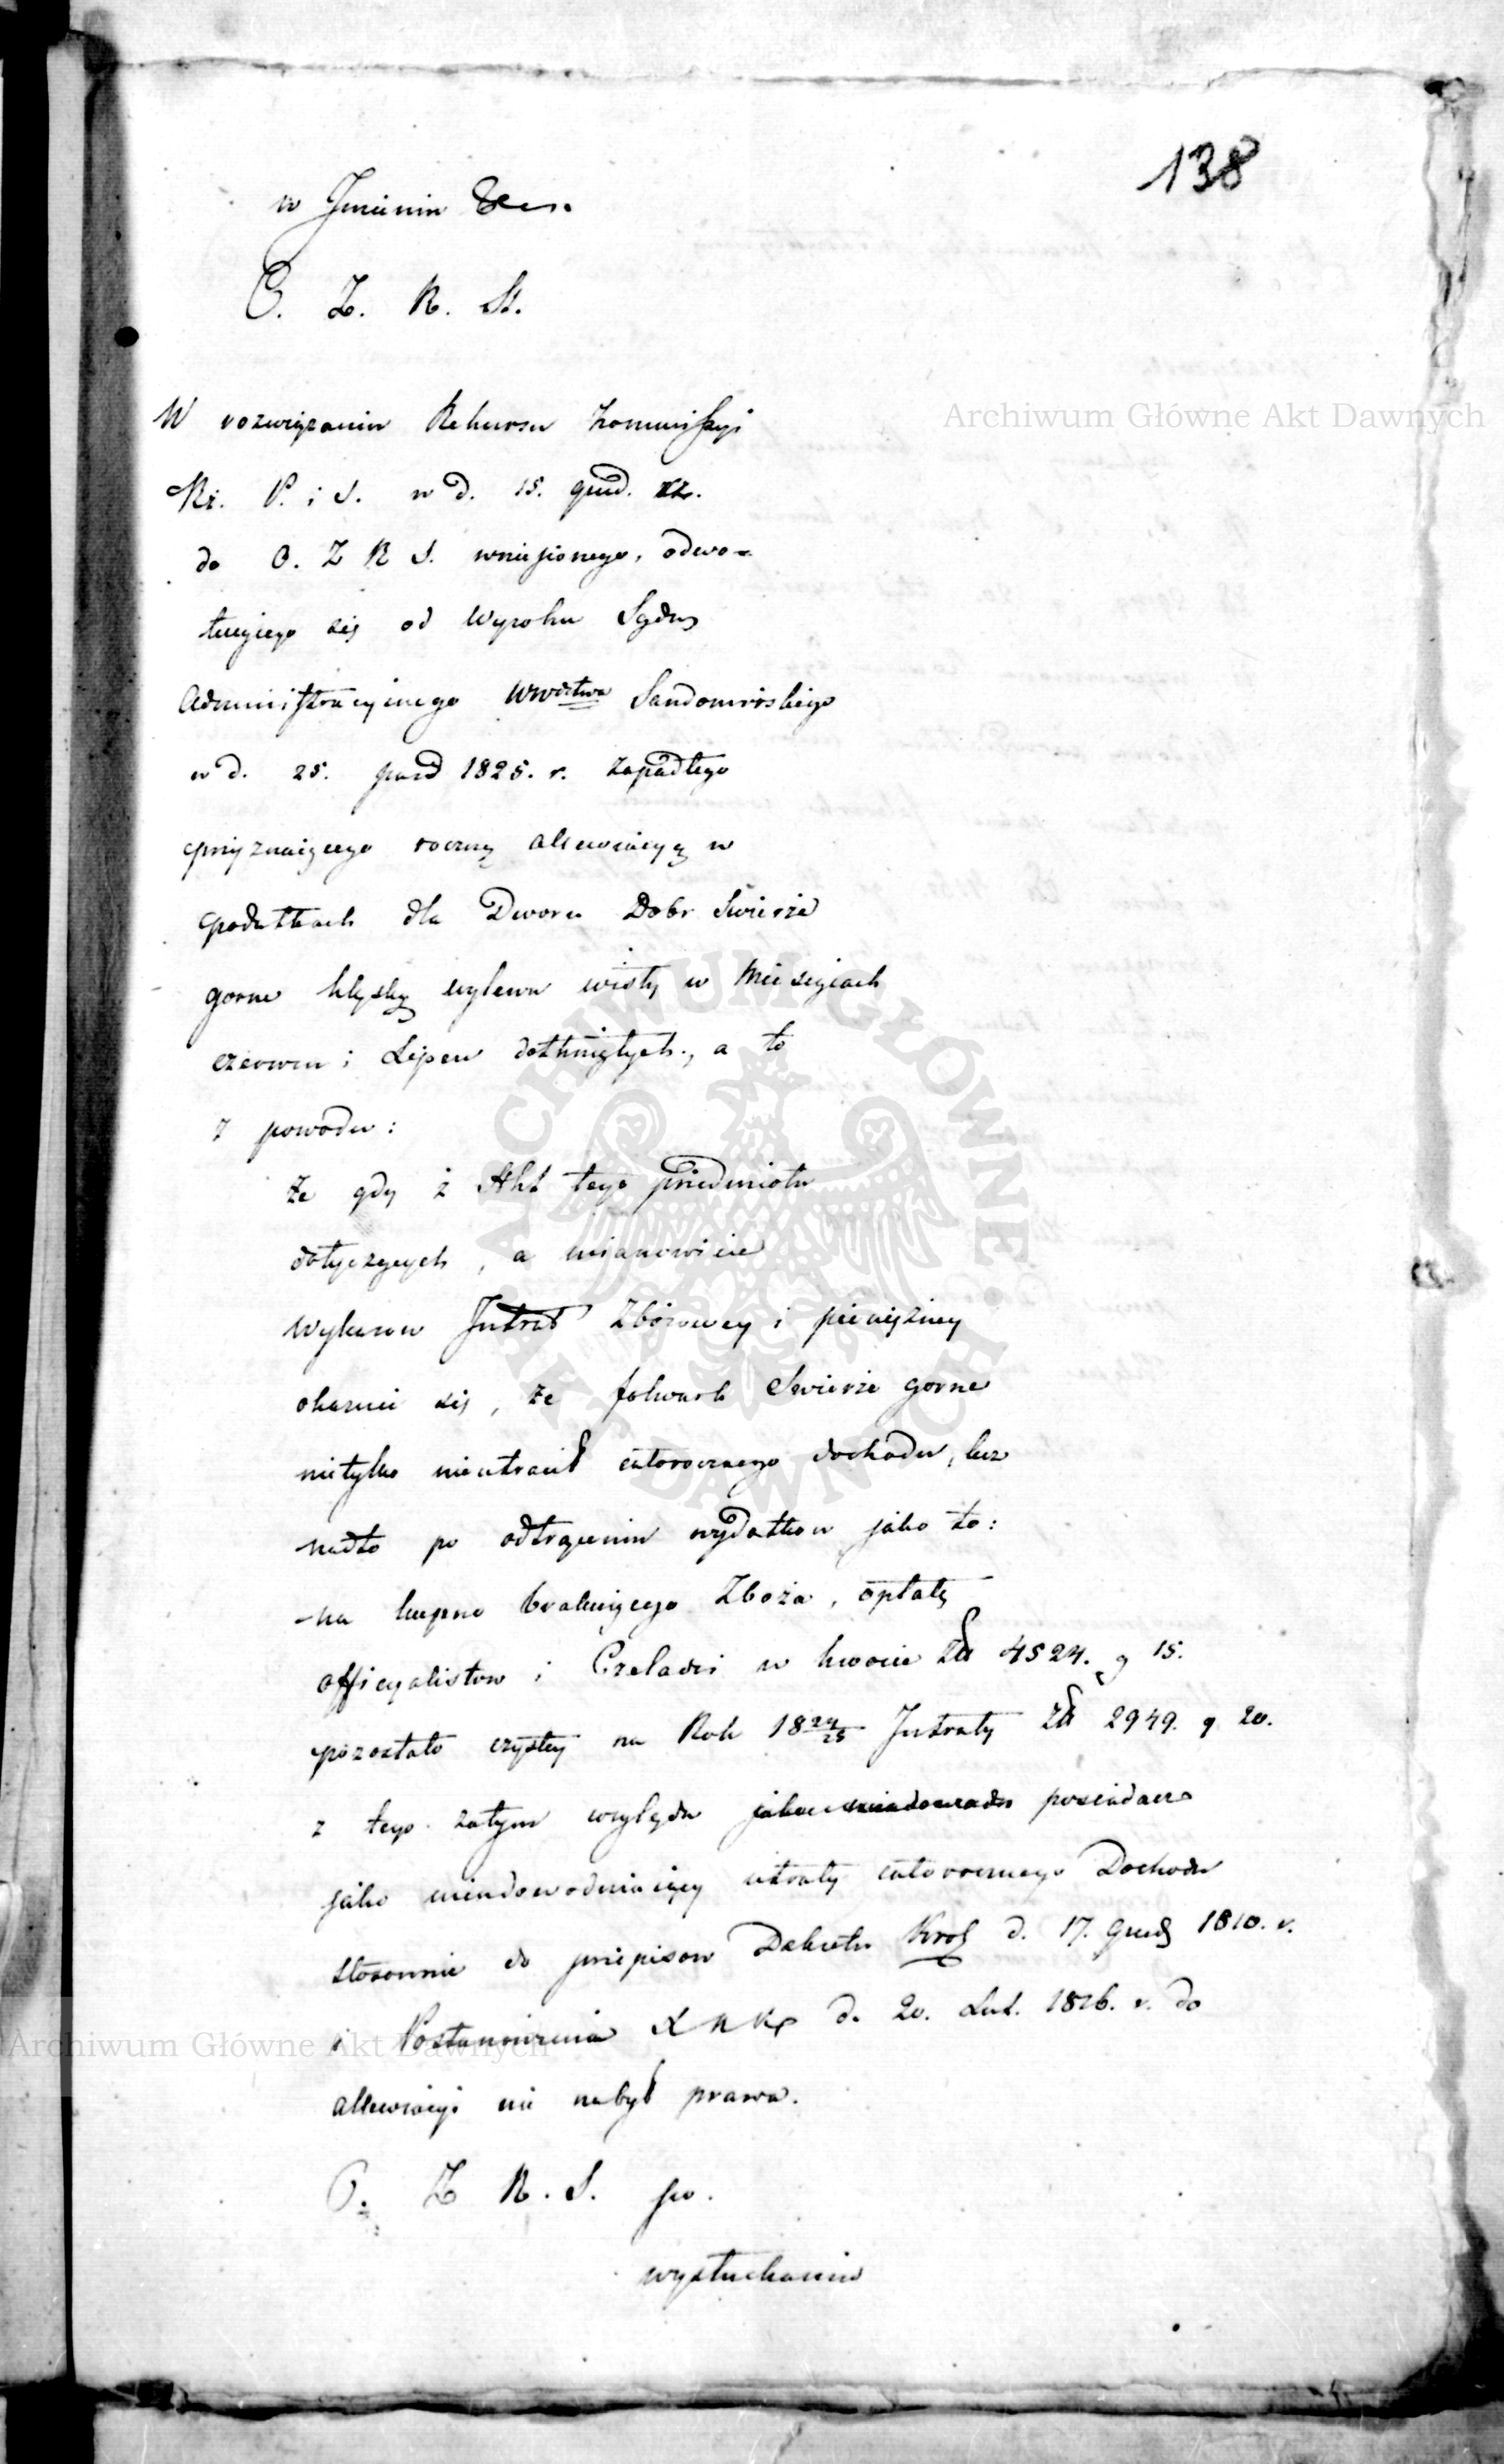 138
w Jmieniu &c.
O. Z. R. St.
Archiwum Główne Akt Dawnych
W rozwiązaniu Rekursu Kommissyi
Rz. P. i S. w d. 15. grud.
do O. Z R S. wniesionego, odwo-
łuiącego się od Wyroku Sądu
Administracyinego Wwdztwa Sandomirskiego
w d. 25. paźd 1825. r. zapadłego
przyznaiącego roczną allewiacyą w
podatkach dla Dworu Dobr Swierże
gorne klęską wylewu wisły w Miesiącach
czerwcu i Lipcu dotkniętych, a to
z powodu:
że gdy z Akt tego przedmiotu
dotyczących, a mianowicie
wykazu Jntrat Zbożowey i pienięzney
okazuie się, że folwark Swierże gorne
nietylko nieutracił całorocznego dochodu, lecz
nadto po odtrąceniu wydatkow jako to:
na kupno brakuiącego Zboża, opłatę
officyalistow i Czeladzi w kwocie Zł 4524. g 15.
pozostało czystey na Rok 18 24/25 Jntraty Zł 2949. g 20.
z tego zatym względu posiadacz
jako nieudowodniaiący utraty całorocznego Dochodu
stosownie do przepisow Dekretu Krol d. 17. Grud 1810. r.
i Postanowienia X N K d. 20. Lut. 1816. r. do
allewiacyi nie nabył prawa.
Archiwum Główne Akt Dawnych
O. Z R. S. po.
wysłuchaniu
ARCHIWUM GŁÓWNE AKT DAWNYCH